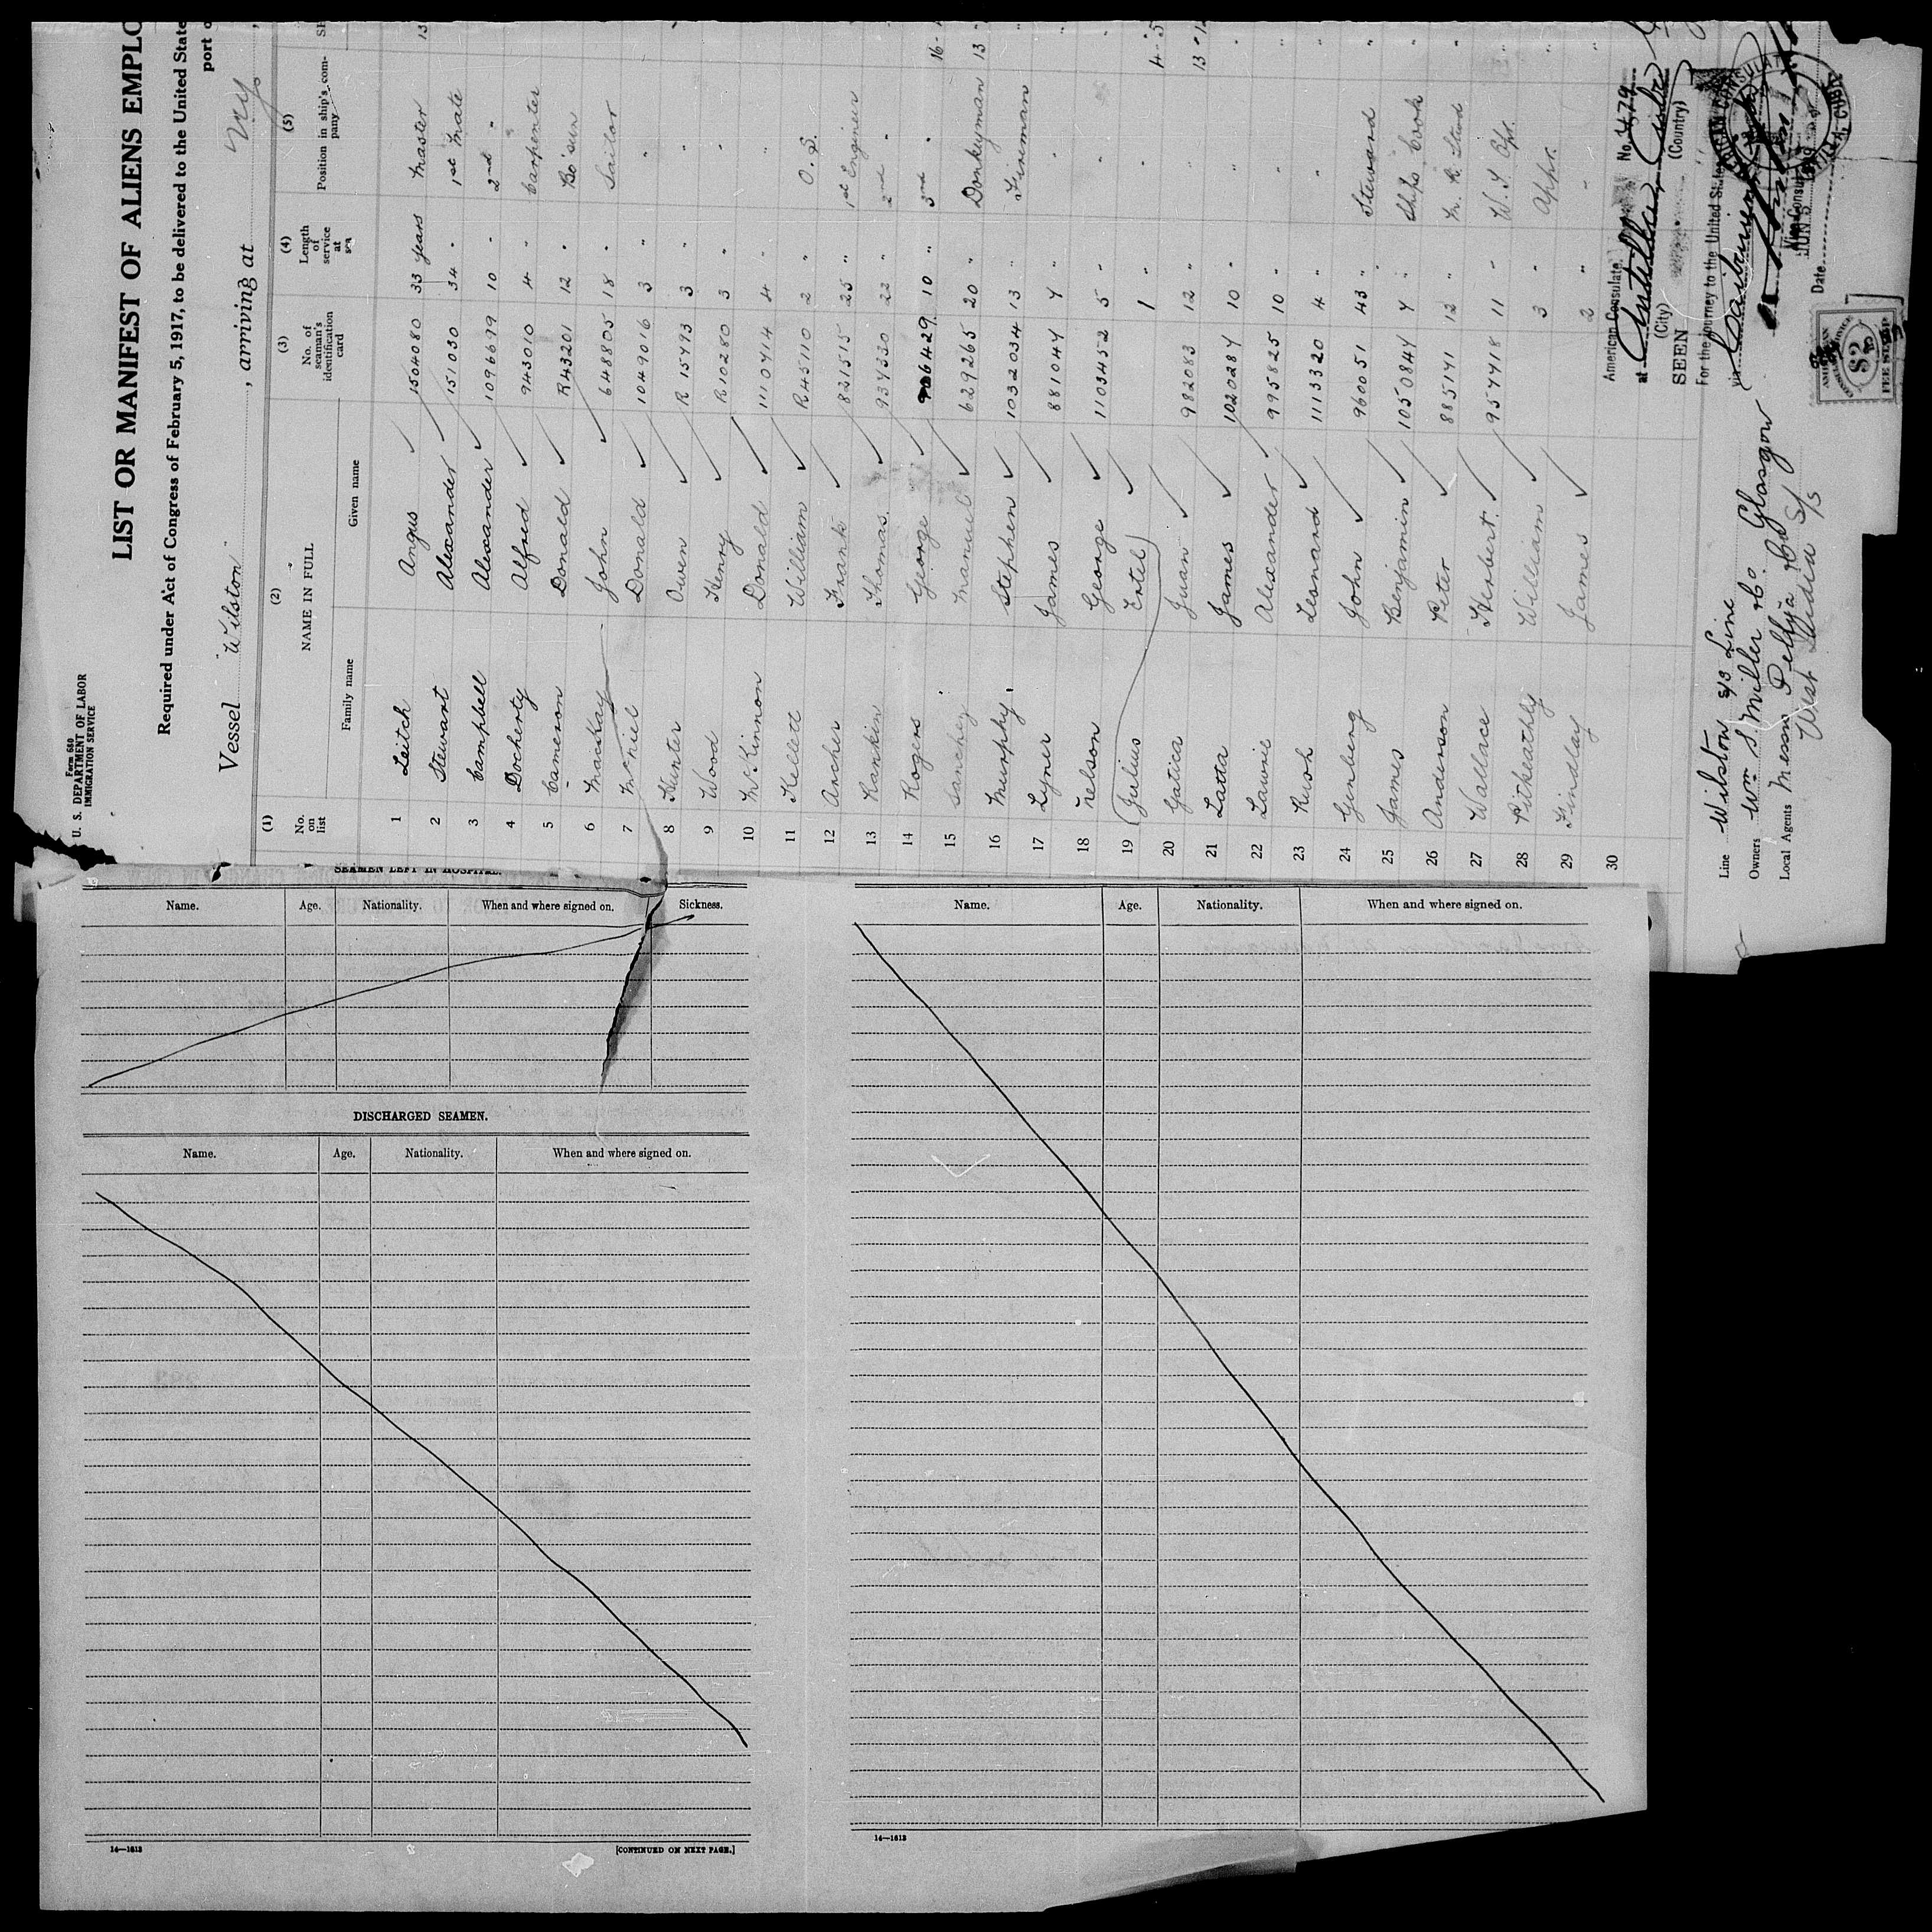 Form 680
U. S. DEPARTMENT OF LABOR
IMMIGRATION SERVICE
LIST OR MANIFEST OF ALIENS EMPLO
Required under Act of Congress of February 5, 1917, to be delivered to the United State
port o
Vessel "Wilston" , arriving at
(1) (2) (3) (4) (5)
No. on list NAME IN FULL No. of seaman's identification card Length of service at sea Position in ship's company
Family name Given name
1 Leitch Angus 1504080 33 years Master 13
2 Stewart Alexander 151030 34 " 1st Mate
3 Campbell Alexander 1096699 10 " 2nd "
4 Docherty Alfred 943010 4 " Carpenter
5 Cameron Donald R43201 12 " Bo'sun
6 MacKay John 648805 18 " Sailor
7 McNiel Donald 1049016 3 " "
8 Hunter Owen R 15793 3 " "
9 Wood Henry R10280 3 " "
10 McKinnon Donald 1110714 4 " "
11 Kellett William R45110 2 " O. S.
12 Archer Frank 821515 25 " 1st Engineer
13 Rankin Thomas 937330 22 " 2nd "
14 Rogers George 6429 10 " 3rd "
15 Sanchez Manuel 629265 20 " Donkeyman
16 Murphy Stephen 1032034 13 " Fireman
17 Lyner James 881047 7 " "
18 Nelson George 1103452 5 " "
19 Julius Ertel 1 " "
20 Gatica Juan 982083 12 " "
21 Latta James 1020287 10 " "
22 Lawrie Alexander 995825 10 " "
23 Rush Leonard 1113320 4 " "
24 Genberg John 960051 43 " Steward
25 James Benjamin 1050847 7 " Ships Cook
26 Anderson Peter 885171 12 " M. R. Stwd
27 Wallace Herbert 957718 11 " W. T. Opr.
28 Pitkeathly William 3 " Appr.
29 Findlay James 2 " "
30
Line Wilston S/S Line
Owners Wm S. Miller & Co. Glasgow
Local Agents Messrs
West India S/S
American Consulate. No. 479
at Antilla, Cuba
(City) (Country)
SEEN
For the journey to the United States
via
Vice Consul
Date
AMERICAN
$2
FEE STAMP
SEAMEN LEFT IN HOSPITAL.
Name. Age. Nationality. When and where signed on. Sickness.
DISCHARGED SEAMEN.
Name. Age. Nationality. When and where signed on.
14—1613 [CONTINUED ON NEXT PAGE.]
Name. Age. Nationality. When and where signed on.
14—1613